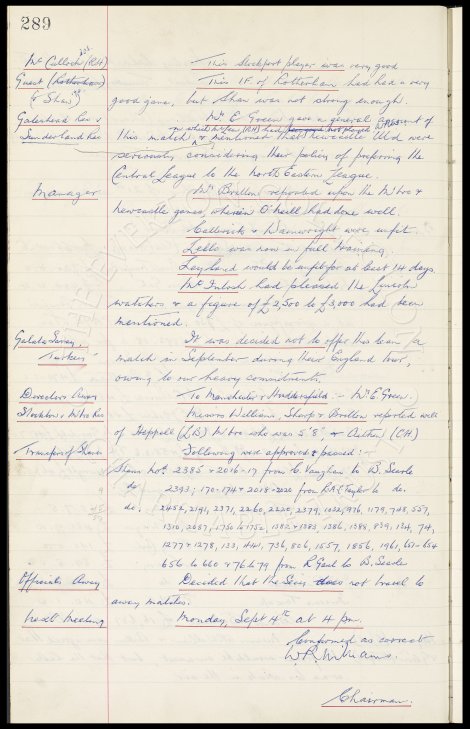 289
Mc Culloch (RH) This Stockport player was very good
Guest (Rotherham) This IF of Rotherham had had a very
(& Shaw) good game, but Shaw was not strong enough.
Gateshead Res v Mr E Green gave a general report of
on which McGuer (RH) had not played
Sunderland Res this match & mentioned that Newcastle Utd were
seriously considering their policy of preferring the
Central League to the North Eastern League.
Manager Mr Brolton reported upon the M'bro &
Newcastle games, wherein O'Neill had done well.
Callwick & Wainwright were unfit.
Lello was now in full training.
Leyland would be unfit for at least 14 days.
McIntosh had pleased the Lincoln
watchers & a figure of £2,500 to £3,000 had been
mentioned.
Galata Saray, It was decided not to offer this team a
Turkey match in September during their England tour,
owing to our heavy commitments.
Directors Away To Manchester & Huddersfield :- Mr E. Green.
Stockton v M'bro Res Messrs Williams, Sharp & Brolton reported well
of Heppell (LB) M'bro who was 5'8" & (CH)
Transfer of Shares Following was approved & passed :-
Shares Nos. 2385 & 2016-17 from C. Vaughan to B. Searle
do 2393; 170-174 & 2018-2020 from R.A.C. Taylor to do.
do. 2452, 2191, 2371, 2260, 2220, 2379, 1032, 976, 1179, 748, 557,
1310, 2087, 1750 to 1752, 1382 & 1383, 1386, 1388, 839, 134, 74,
1277 & 1278, 133, 1441, 736, 806, 1557, 1856, 1961, 651-654
656 to 660 & 676 to 79 from R Gaul to B. Searle
Officials Away Decided that the Secy does not travel to
away matches.
Next Meeting Monday, Sept 4th at 4 pm.
Confirmed as correct
W.R. Williams.
Chairman.